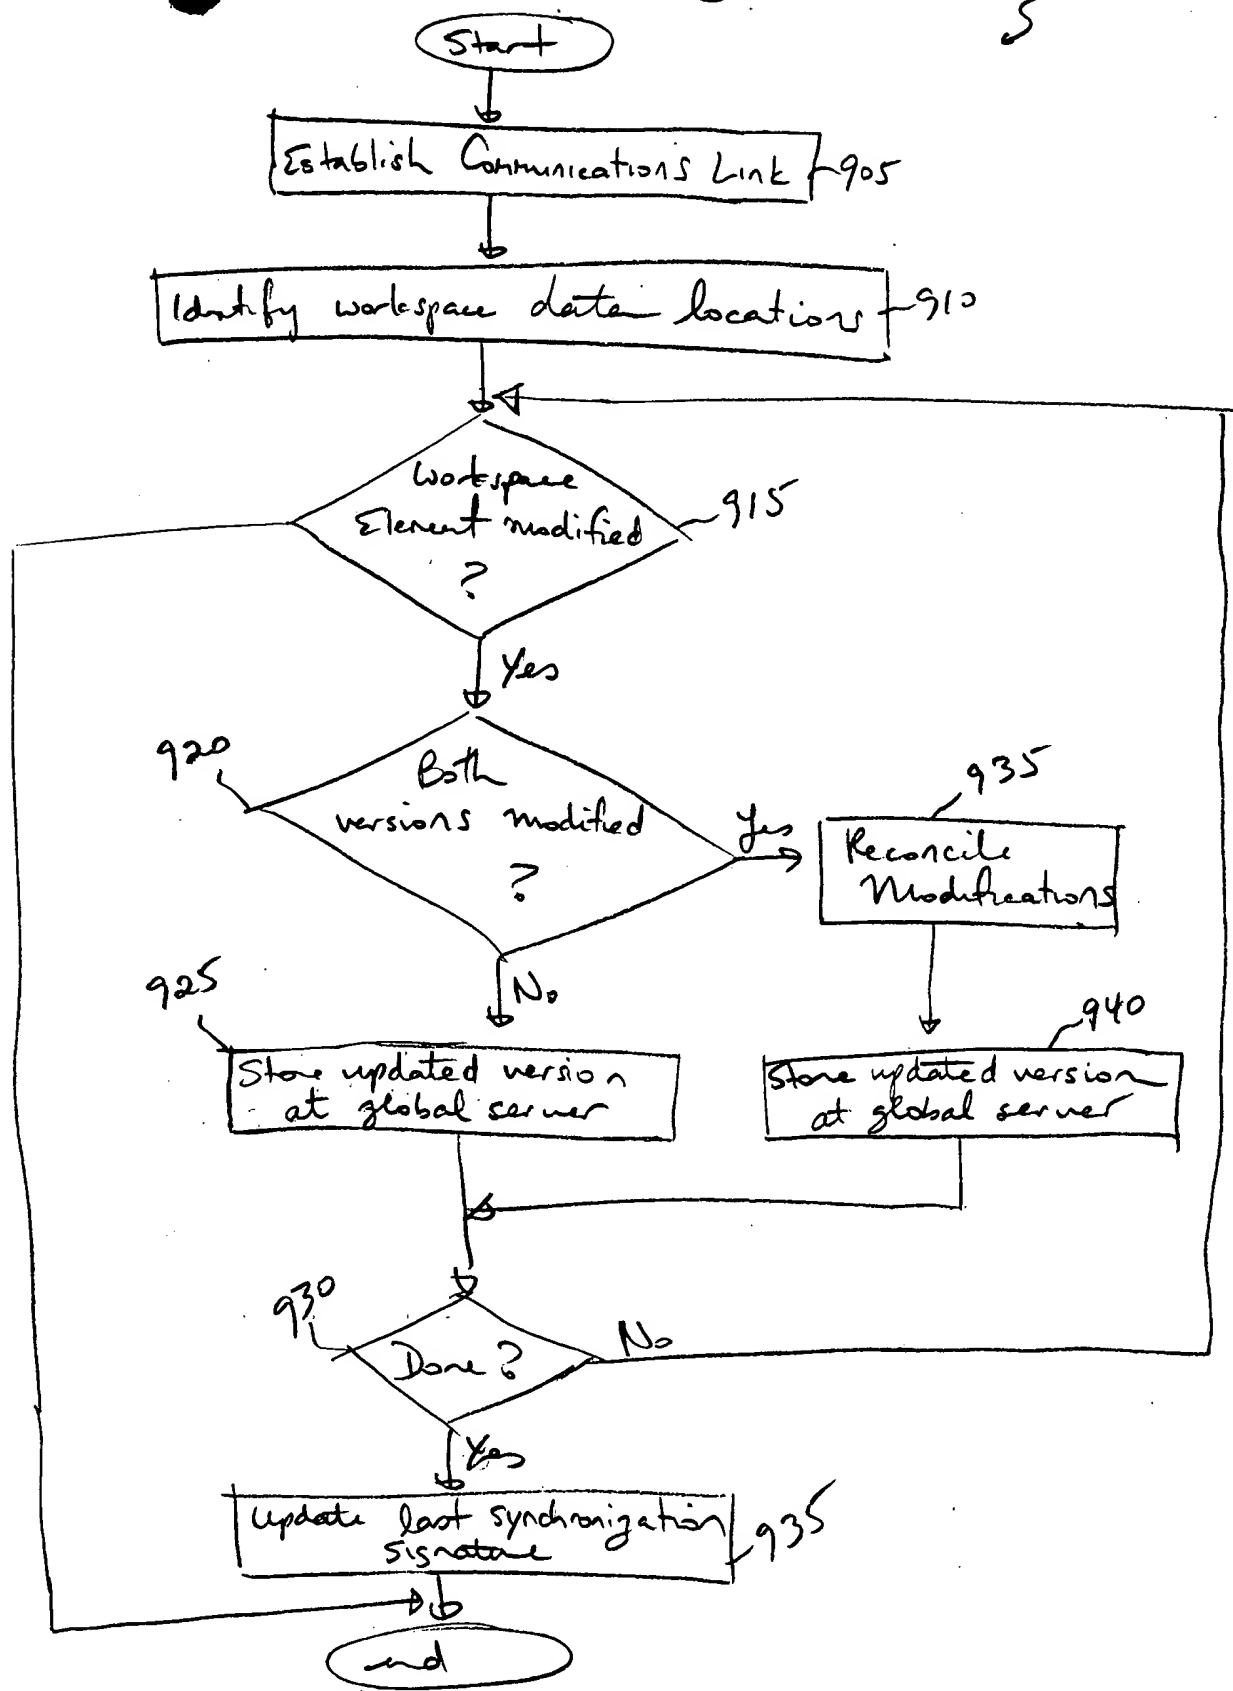 Start
Establish Communications Link
905
Identify workspace data locations
910
Workspace
Element modified
?
915
Yes
920
Both
versions modified
?
Yes
935
Reconcile
Modifications
No
925
Store updated version
at global server
940
Store updated version
at global server
930
Done?
No
Yes
update last synchronization
signature
935
end